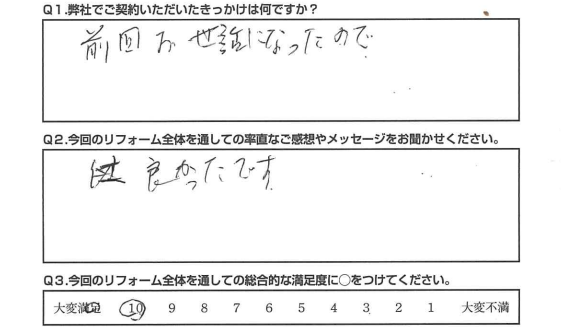 Q1.弊社でご契約いただいたきっかけは何ですか？
前回お世話になったので
Q2.今回のリフォーム全体を通しての率直なご感想やメッセージをお聞かせください。
良かったです
Q3.今回のリフォーム全体を通しての総合的な満足度に○をつけてください。
大変満足 10 9 8 7 6 5 4 3 2 1 大変不満